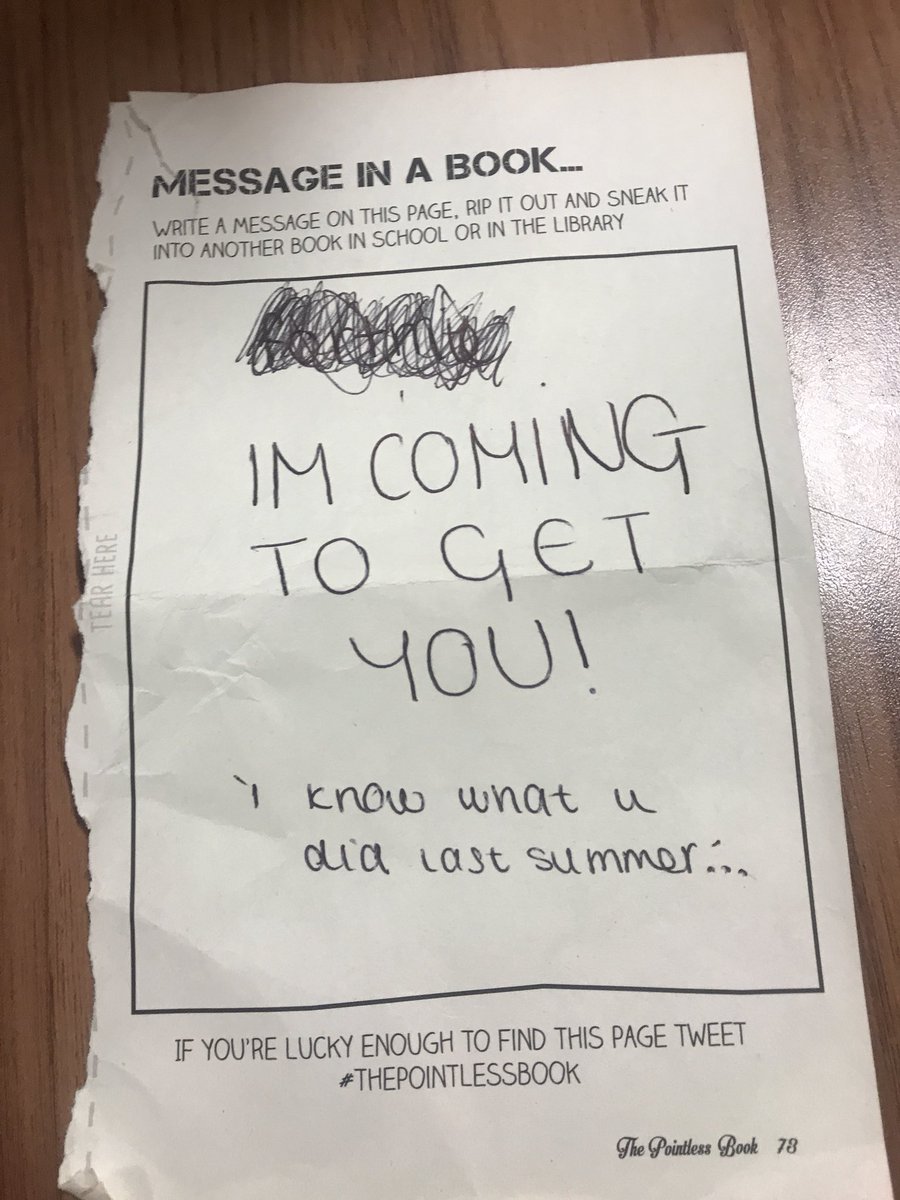 MESSAGE IN A BOOK...
WRITE A MESSAGE ON THIS PAGE, RIP IT OUT AND SNEAK IT
INTO ANOTHER BOOK IN SCHOOL OR IN THE LIBRARY
IM COMING
TO GET
YOU!
i know what u
did last summer...
TEAR HERE
IF YOU'RE LUCKY ENOUGH TO FIND THIS PAGE TWEET
#THEPOINTLESSBOOK
The Pointless Book 73